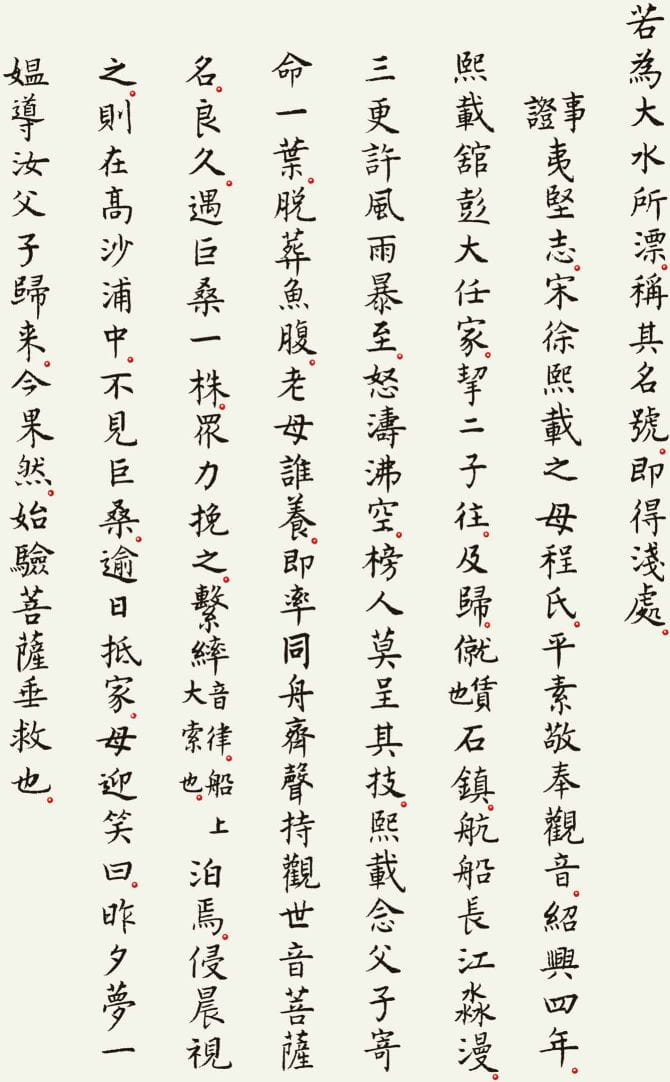 若為大水所漂。稱其名號。即得淺處。
事證 夷堅志。宋徐熙載之母程氏。平素敬奉觀音。紹興四年。
熙載舘彭大任家。挈二子往。及歸。僦賃也石鎮。航船長江淼漫。
三更許風雨暴至。怒濤沸空。榜人莫呈其技。熙載念父子寄
命一葉。脱葬魚腹。老母誰養。即率同舟齊聲持觀世音菩薩
名。良久。遇巨桑一株。眾力挽之。繫繂音律。船上大索也。泊焉。侵晨視
之。則在髙沙浦中。不見巨桑。逾日抵家。母迎笑曰。昨夕夢一
媼導汝父子歸来。今果然。始驗菩薩垂救也。